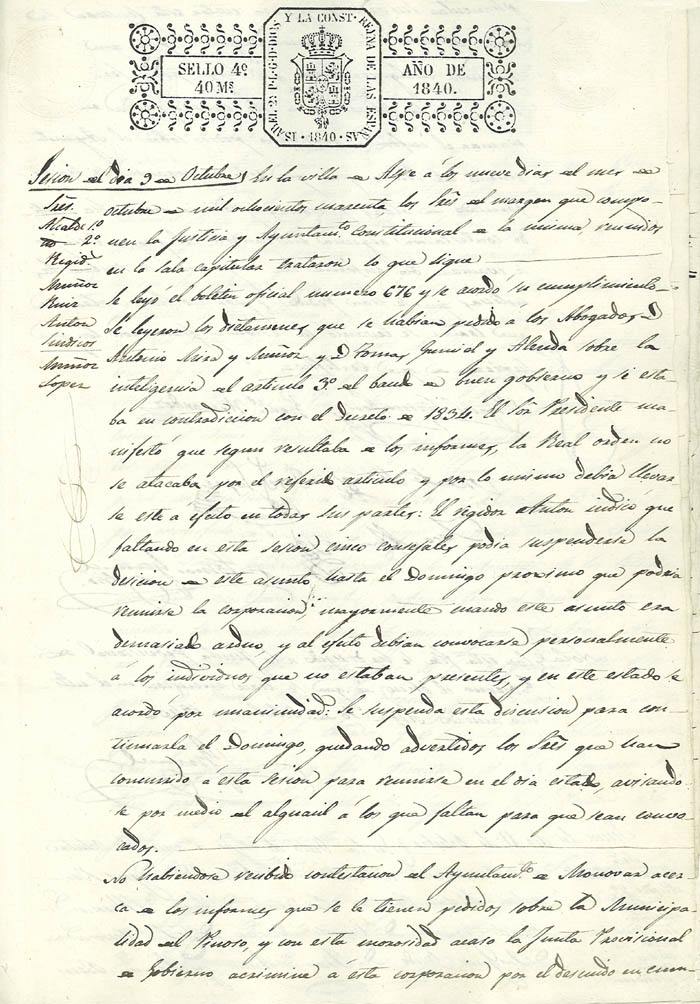 ISABEL 2ª P.L.G.D.DIOS Y LA CONST. REYNA DE LAS ESPAÑAS
·1840·
SELLO 4º
40 Ms
AÑO DE
1840.
Sesion del dia 9 de Octubre
En la villa de Aspe á los nueve dias del mes de
octubre de mil ochocientos cuarenta, los Sres del margen que compo-
nen la Justicia y Ayuntamto Constitucional de la misma, reunidos
en la sala capitular trataron lo que sigue
Sres.
Alcalde 1º
2º
Regid.
Muñoz
Ruiz
Anton
Sindicos
Muñoz
Lopez
Se leyó el boletin oficial numero 676 y se acordó su cumplimiento.
Se leyeron los dictamenes que se habian pedido á los Abogados D.
Antonio Mira y Muñoz y D. Tomas y Alenda sobre la
inteligencia del articulo 3º del bando de buen gobierno y si esta-
ba en contradicion con el Decreto de 1834. El Sor Presidente ma-
nifestó que segun resultaba de los informes, la Real orden no
se atacaba por el referido articulo y por lo mismo debia llevar-
se este a efecto en todas sus partes: El regidor Anton indicó que
faltando en esta sesion cinco consejales podia suspenderse la
desicion de este asunto, hasta el Domingo proximo que podria
reunirse la corporacion, mayormente cuando este asunto era
demasiado arduo, y al efecto debian convocarse personalmente
á los individuos que no estaban presentes, y en este estado se
acordó por unanimidad: Se suspenda esta discusion para con-
tinuarla el Domingo, quedando advertidos los Sres que han
concurrido á esta sesion para reunirse en el dia citado, avisando-
se por medio del alguacil á los que faltan para que sean convo-
cados.
No habiendose recibido contestacion del Ayuntamto de Monovar acer-
ca de los informes que se le tienen pedidos sobre la Municipa-
lidad del Pinoso, y con esta morosidad acaso la Junta Provisional
de Gobierno acrimine á esta corporacion por el descuido en cum-